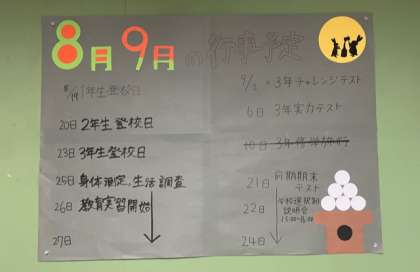 8月9月の行事予定
8/19 1年生登校日
20日 2年生登校日
23日 3年生登校日
25日 身体測定、生活調査
26日 教育実習開始
27日
9/2 3年チャレンジテスト
6日 3年実力テスト
10日 3年修学旅行
21日 前期期末
テスト
22日 学校選択制
説明会
24日